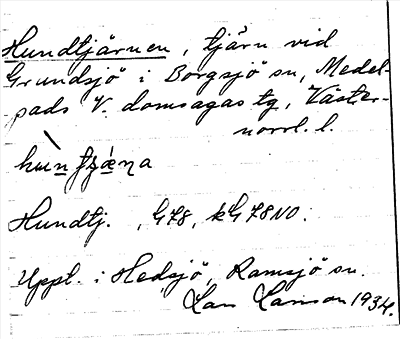 Hundtjärnen, tjärn vid
Grundsjö i Borgsjö sn, Medel-
pads V. domsagas tg, Väster-
norrl. l.
Hundtj. , G78, kG78NO.
Uppt. i Hedsjö, Ramsjö sn.
Lars Larsson 1934.